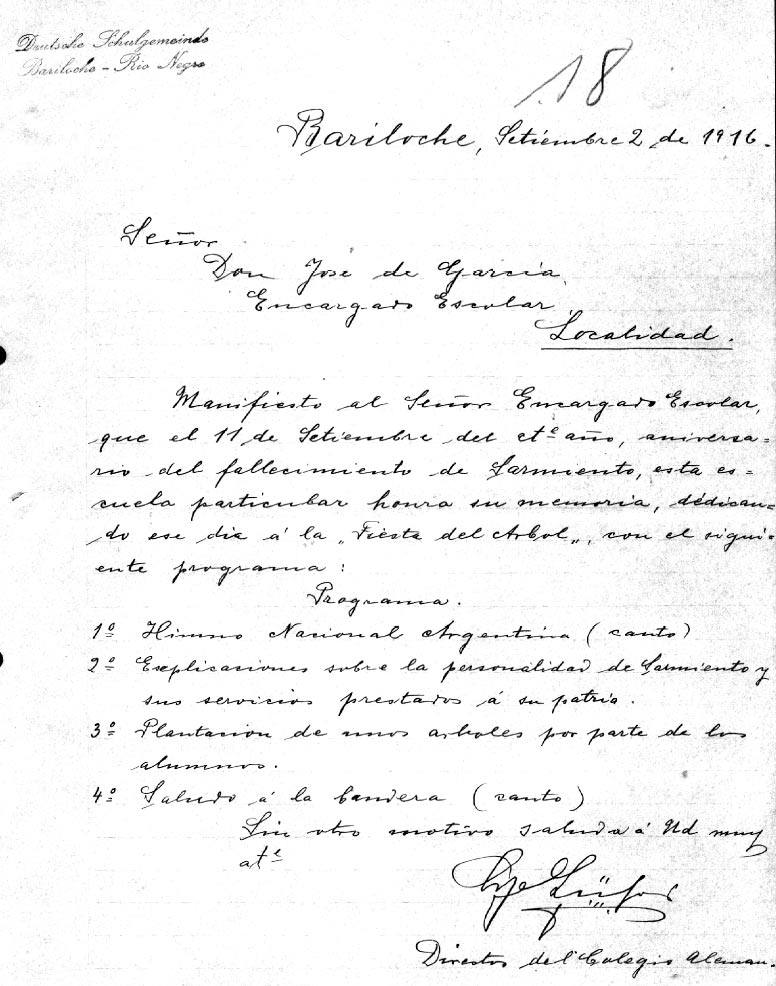 Deutsche Schulgemeinde
Bariloche - Rio Negro
18
Bariloche, Setiembre 2 de 1916.
Señor
Don José de García
Encargado Escolar
Localidad.
Manifiesto al Señor Encargado Escolar,
que el 11 de Setiembre del cte año, aniversa=
rio del fallecimiento de Sarmiento, esta es=
cuela particular honra su memoria, dedican=
do ese dia á la „Fiesta del Arbol„, con el sigui=
ente programa:
Programa.
1º Himno Nacional Argentina (canto)
2º Explicaciones sobre la personalidad de Sarmiento y
sus servicios prestados á su patria.
3º Plantacion de unos arboles por parte de los
alumnos.
4º Saludo á la bandera (canto)
Sin otro motivo saluda á Ud muy
ate
Director del Colegio Aleman.